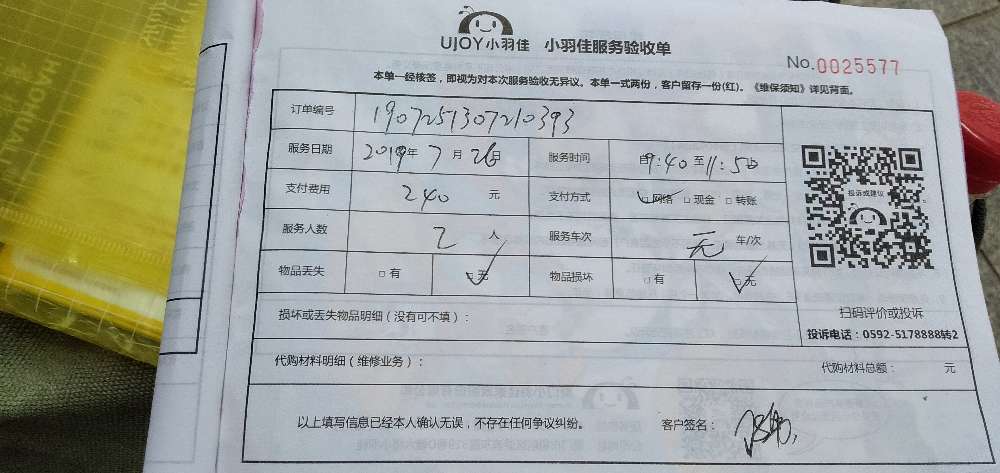 UJOY小羽佳 小羽佳服务验收单
No.0025577
本单一经核签，即视为对本次服务验收无异议。本单一式两份，客户留存一份(红)。《维保须知》详见背面。
订单编号 1907251307210393
服务日期 2019年7月26日 服务时间 自9:40至11:50
支付费用 240元 支付方式 □网络 □现金 □转账
服务人数 2人 服务车次 无 车/次
物品丢失 □有 □无 物品损坏 □有 □无
投诉或建议
扫码评价或投诉
投诉电话：0592-5178888转2
损坏或丢失物品明细（没有可不填）：
代购材料明细（维修业务）： 代购材料总额： 元
以上填写信息已经本人确认无误，不存在任何争议纠纷。 客户签名：